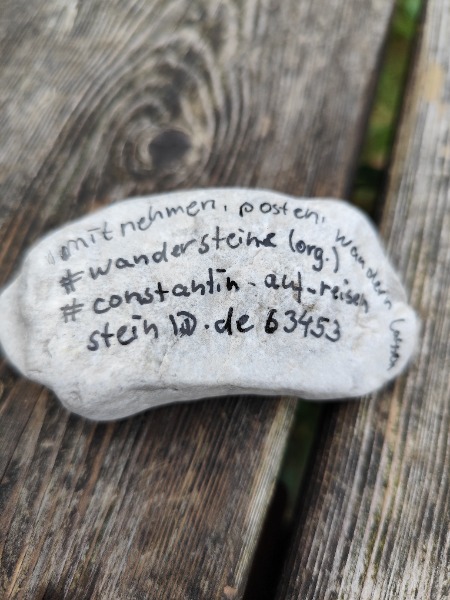 mitnehmen, posten, wandern lassen
#wandersteine (org.)
#constantin-auf-reisen
stein .de 63453